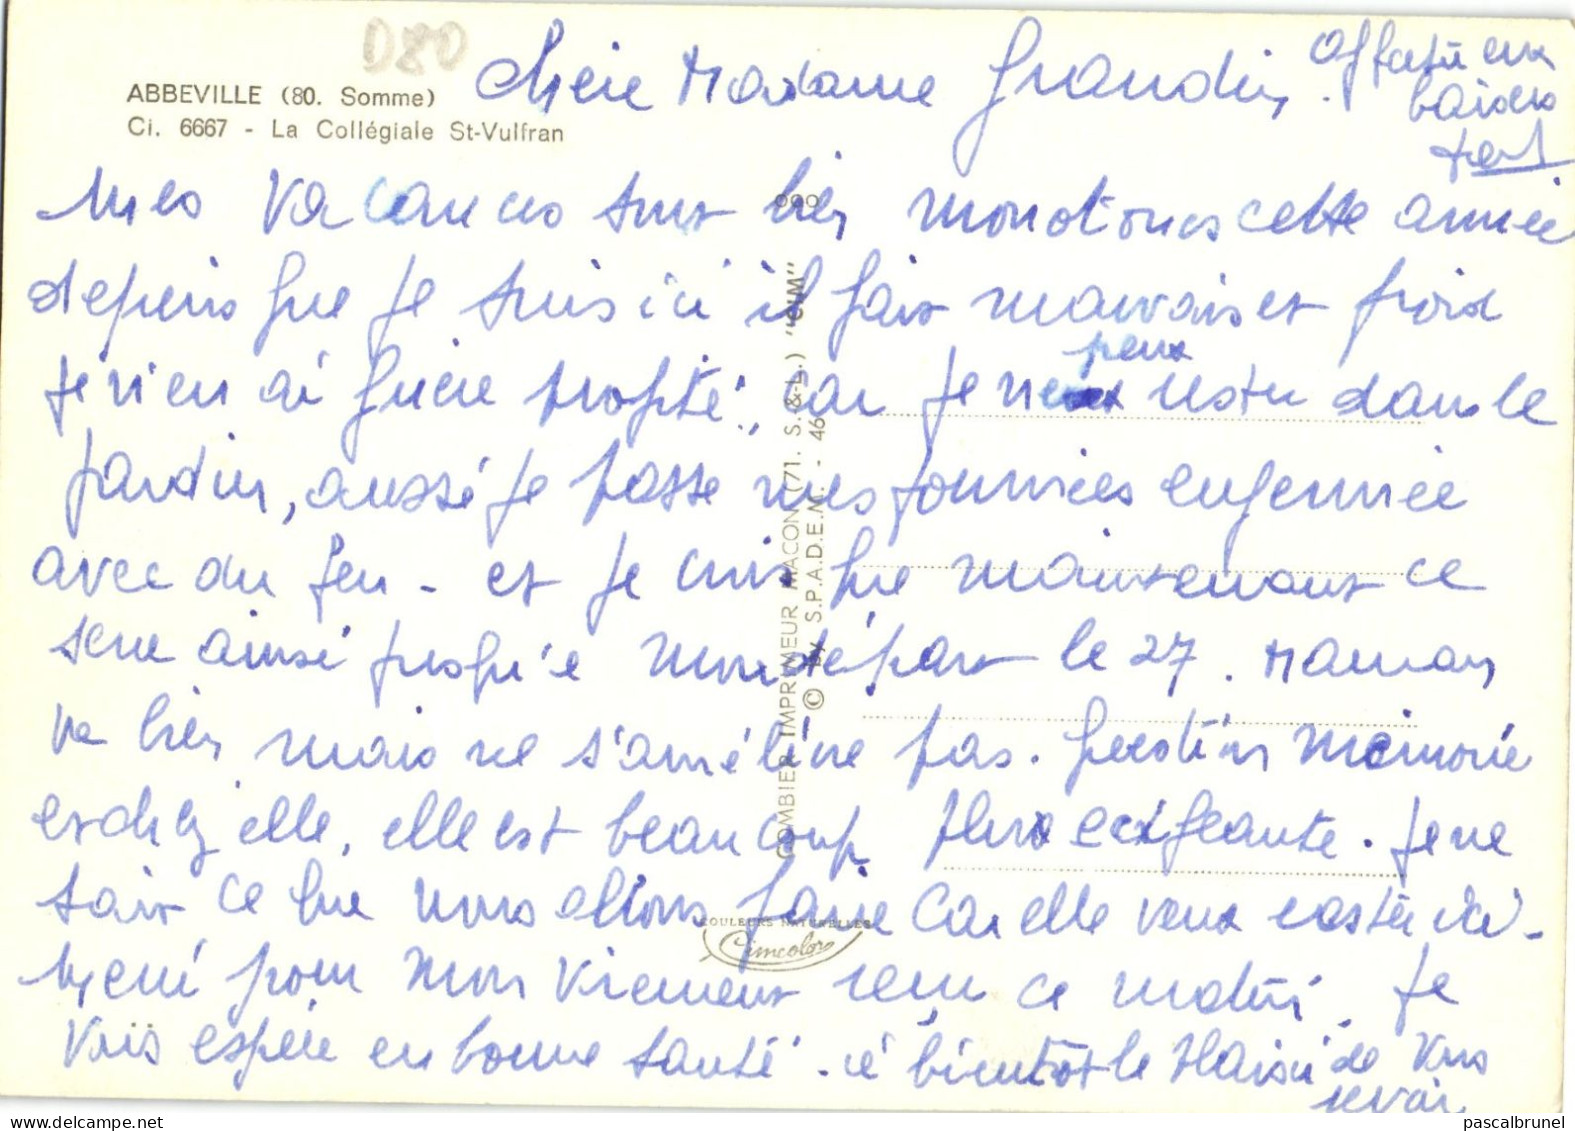 D80
ABBEVILLE (80. Somme)
Ci. 6667 - La Collégiale St-Vulfran
Chère Madame Grandin.
Mes vacances sont bien monotones cette année
depuis que je suis ici il fait mauvais et froid
Je n'en ai guère profité, car je ne peux rester dans le
jardin, aussi je passe mes journées enfermée
avec du feu - et je crois que maintenant ce
sera ainsi jusqu'à mon départ le 27. Maman
va bien mais ne s'améliore pas. question mémoire
et chez elle, elle est beaucoup plus exigeante. Je ne
sais ce que nous allons faire car elle veut rester ici -
Merci pour mon virement reçu ce matin. Je
vous espère en bonne santé. à bientôt le plaisir de vous
revoir
Affectueux
baisers
COMBIER IMPRIMEUR MACON (71. S.-&-L.) "CIM"
© by S.P.A.D.E.M. - 46
COULEURS NATURELLES
Cimcolor
pascalbrunel